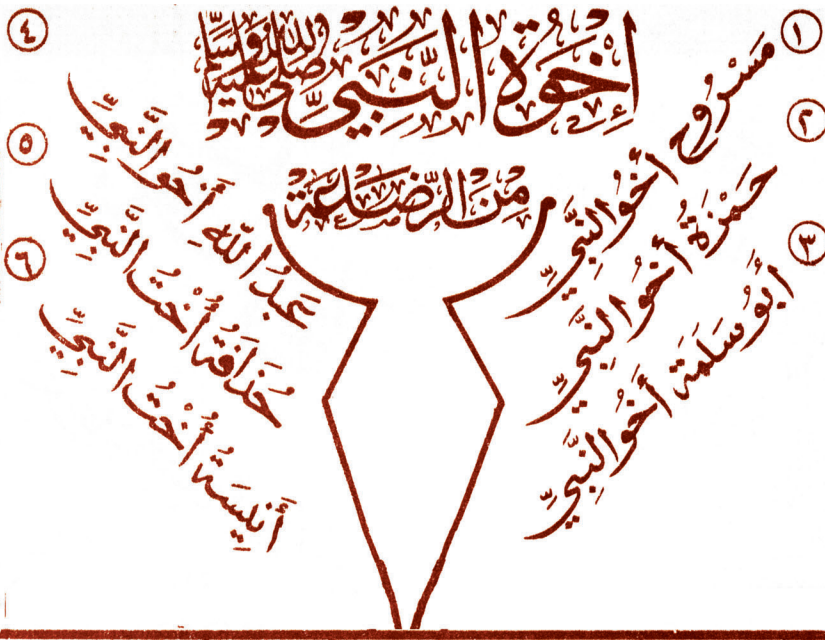 إِخْوَةُ النَّبِيِّ صَلَّى اللهُ عَلَيْهِ وَسَلَّمَ
مِنَ الرَّضَاعَةِ
١
مَسْرُوح أَخُو النَّبِيِّ
٢
حَمْزَةُ أَخُو النَّبِيِّ
٣
أَبُو سَلَمَة أَخُو النَّبِيِّ
٤
عَبْدُ اللهِ أَخُو النَّبِيِّ
٥
حُذَافَةُ أُخْتُ النَّبِيِّ
٦
أُنَيْسَةُ أُخْتُ النَّبِيِّ